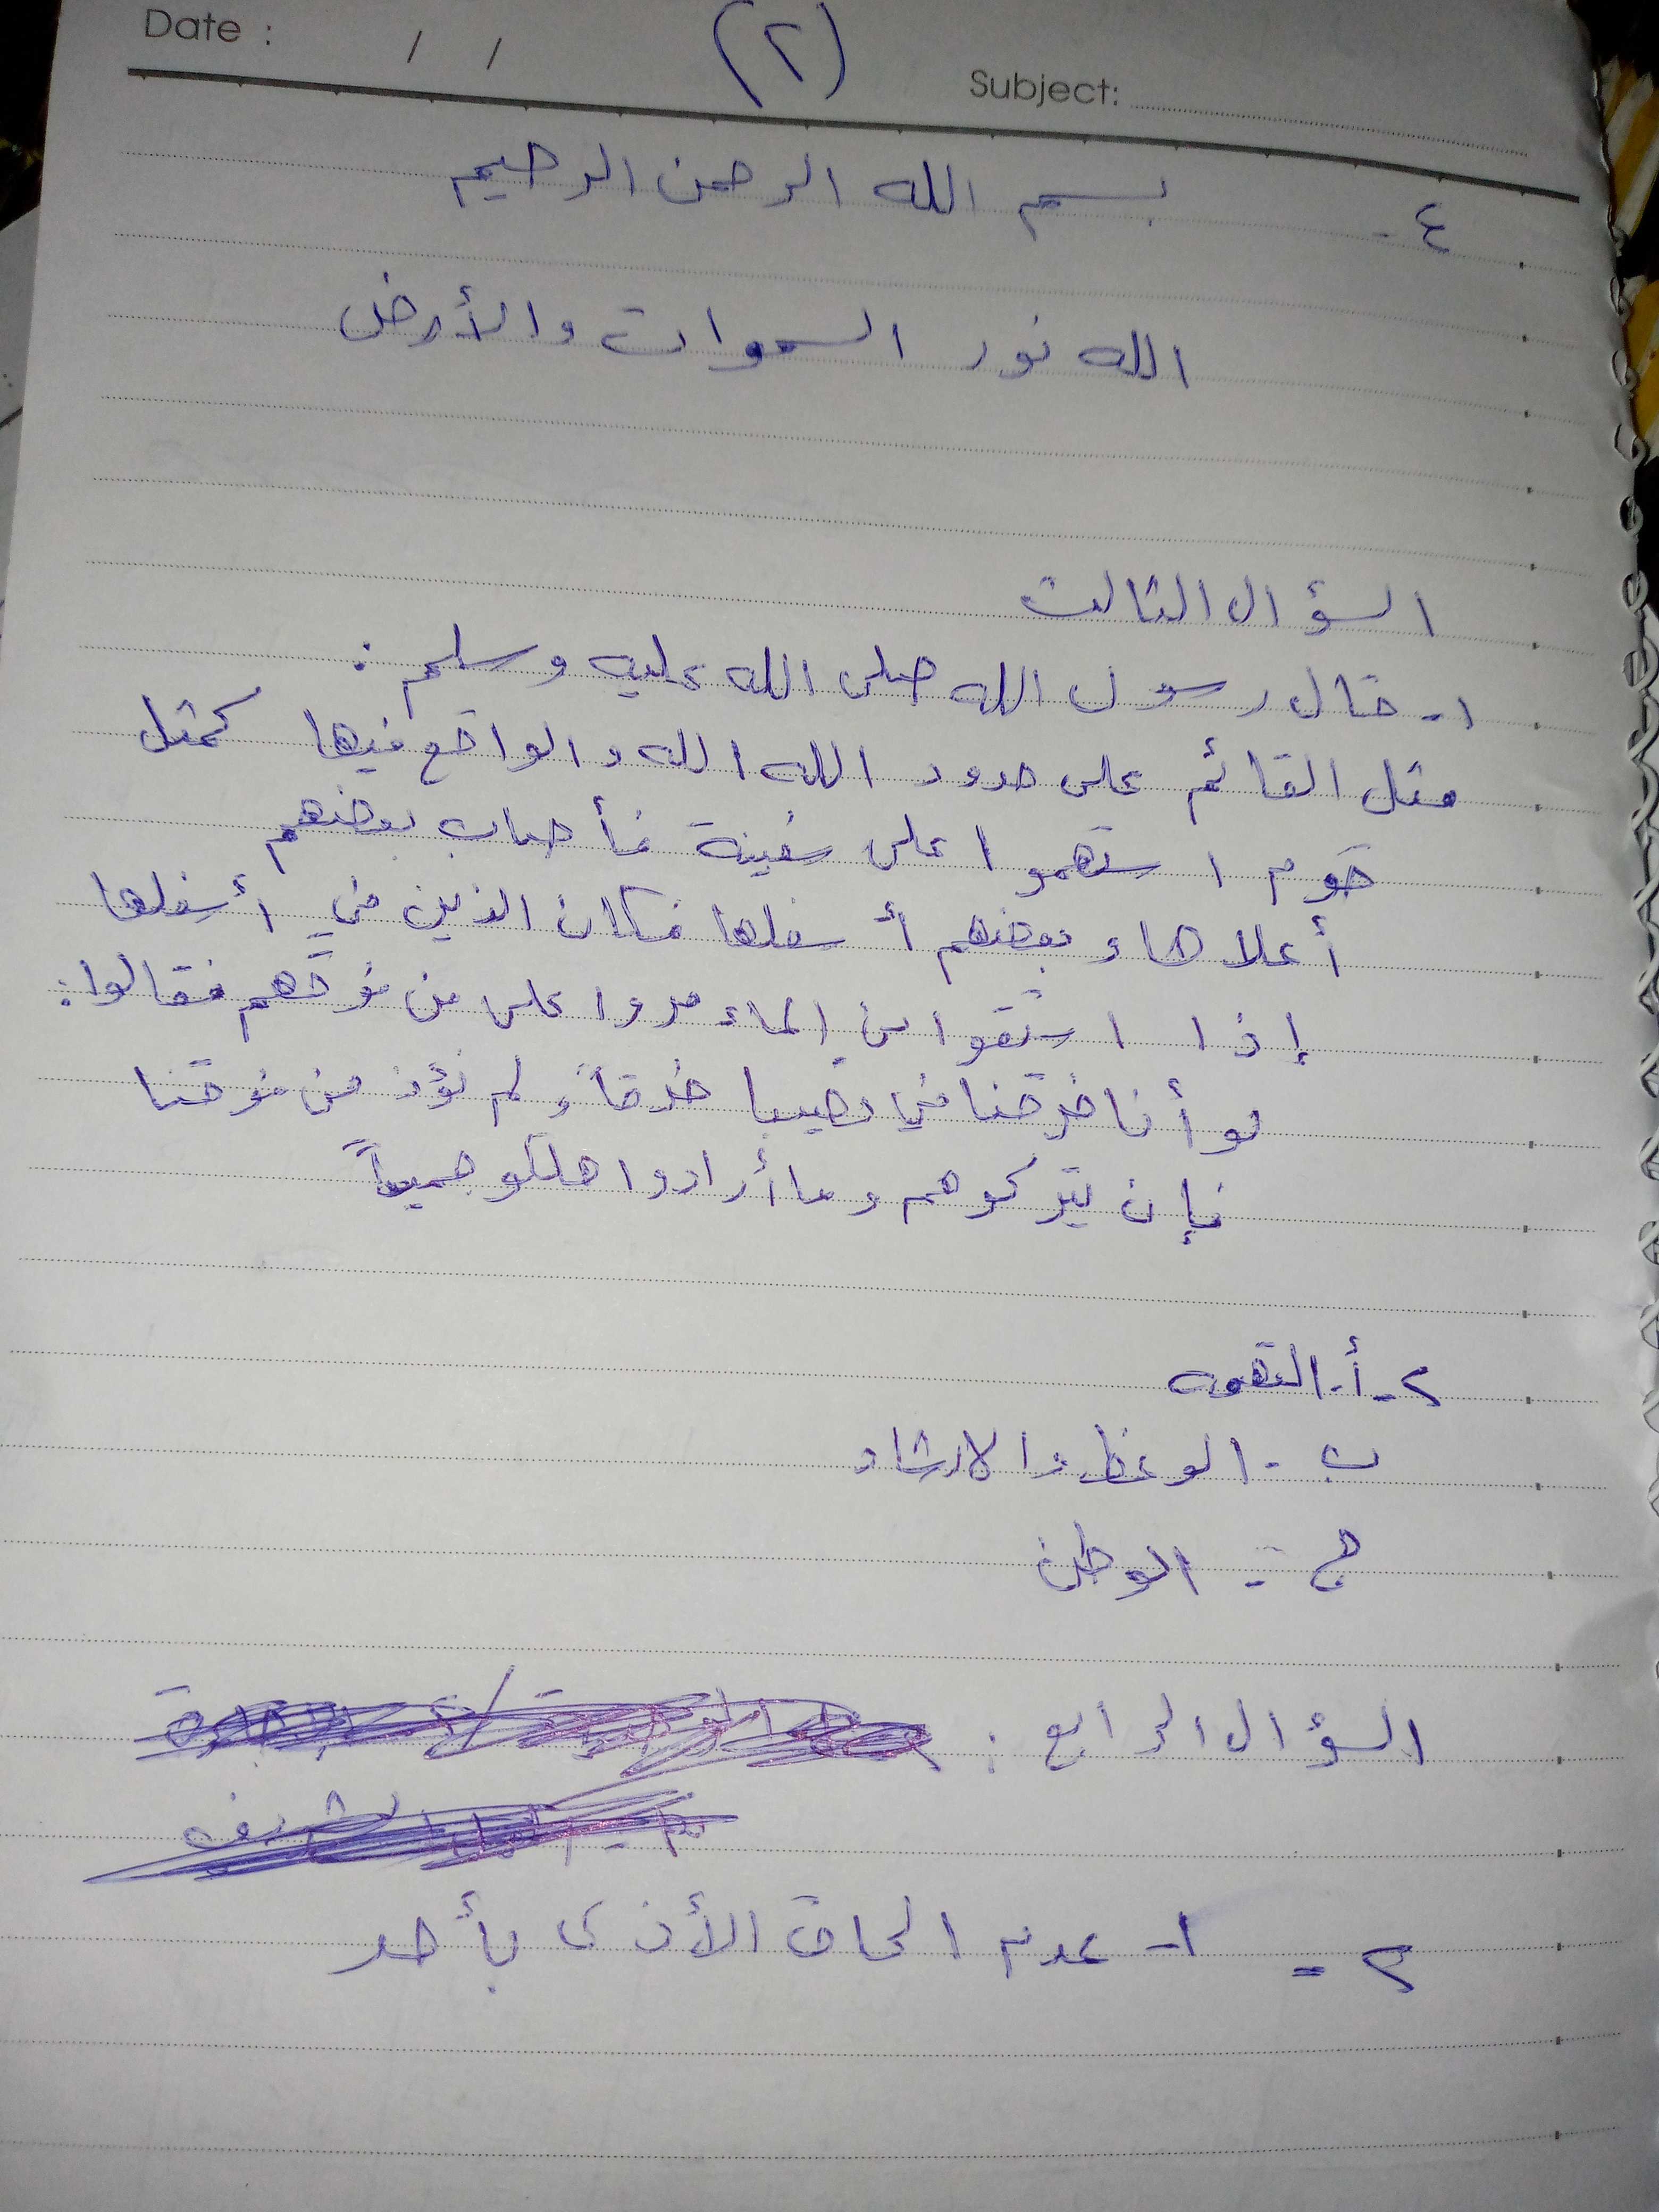 Date : / /
(٢)
Subject:
٤- بسم الله الرحمن الرحيم
الله نور السموات والأرض
السؤال الثالث
١- قال رسول الله صلى الله عليه وسلم :
مثل القائم على حدود الله الله والواقع فيها كمثل
قوم استهموا على سفينة فأصاب بعضهم
أعلاها وبعضهم أسفلها فكان الذين في أسفلها
إذا استقوا من الماء مروا على من فوقهم فقالوا:
لو أنا خرقنا في نصيبا خرقاً ولم نؤذ من فوقنا
فإن يتركوهم وما أرادوا هلكو جميعاً
٢- أ- التهمه
ب - الوعظ والارشاد
ج - الوطن
السؤال الرابع :
٢ = ١- عدم الحاق الأذى بأحد